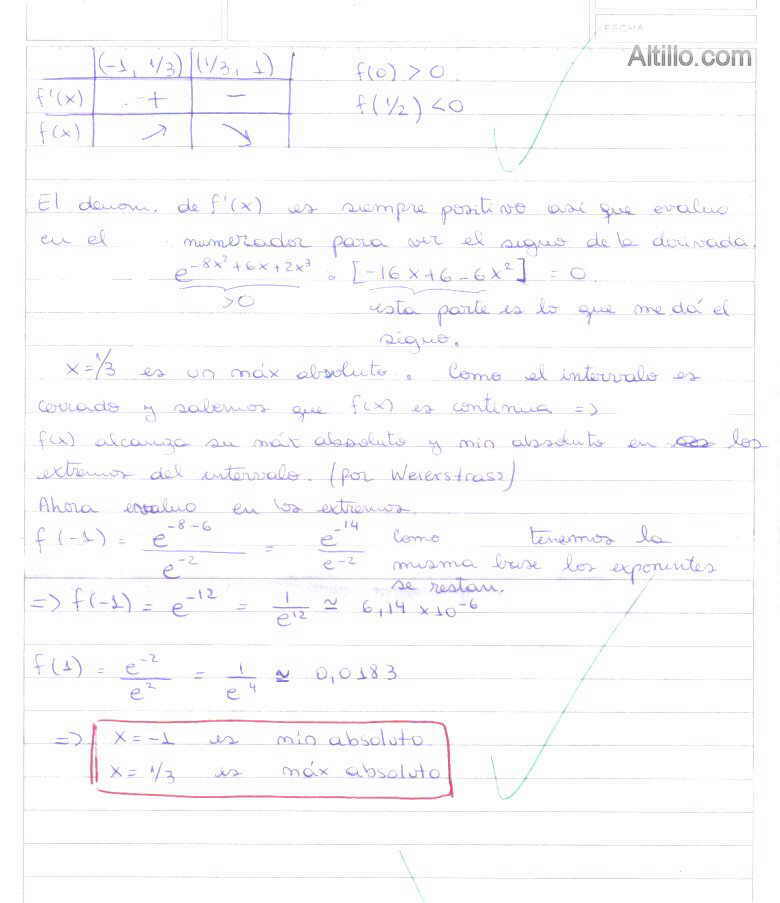 FECHA
Altillo.com
(-1, 1/3) (1/3, 1) f(0) > 0.
f'(x) + - f(1/2) < 0
f(x) ↗ ↘
El denom. de f'(x) es siempre positivo así que evaluo
en el numerador para ver el signo de la derivada.
e^(-8x²+6x+2x³) . [-16x+6-6x²] = 0.
>0 esta parte es lo que me dá el
signo.
x=1/3 es un máx absoluto. Como el intervalo es
cerrado y sabemos que f(x) es continua =>
f(x) alcanza su máx absoluto y min absoluto en los
extremos del intervalo. (por Weierstrass)
Ahora evaluo en los extremos.
f(-1) = e^(-8-6) / e^(-2) = e^(-14) / e^(-2) Como tenemos la
misma base los exponentes
se restan.
=> f(-1) = e^(-12) = 1/e^12 ≃ 6,14 x 10^(-6)
f(1) = e^(-2) / e^2 = 1/e^4 ≃ 0,0183
=> x = -1 es min absoluto.
x = 1/3 es máx absoluto